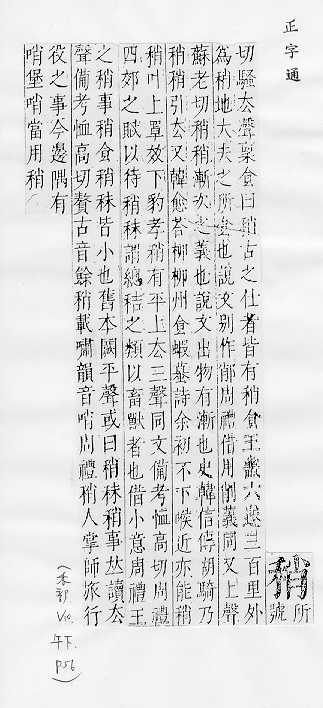 正字通
稍
所
號
切騷去聲稟食曰稍古之仕者皆有稍食王畿六遂三百里外
為稍地大夫之所食也說文别作䣠周禮借用削義同又上聲
蘇老切稍稍漸次之義也說文出物有漸也史韓信傳胡騎乃
稍稍引去又韓愈荅柳柳州食蝦蟇詩余初不下喉近亦能稍
稍叶上罩效下豹孝稍有平上去三聲同文備考恤高切周禮
四郊之賦以待稍秣謂總秸之類以畜獸者也借小意周禮王
之稍事稍食稍秣皆小也舊本闕平聲或曰稍秣稍事𠀤讀去
聲備考恤高切贅古音餘稍載嘯韻音哨周禮稍人掌師旅行
役之事今邊隅有
哨堡哨當用稍
(禾部 午下. P56)